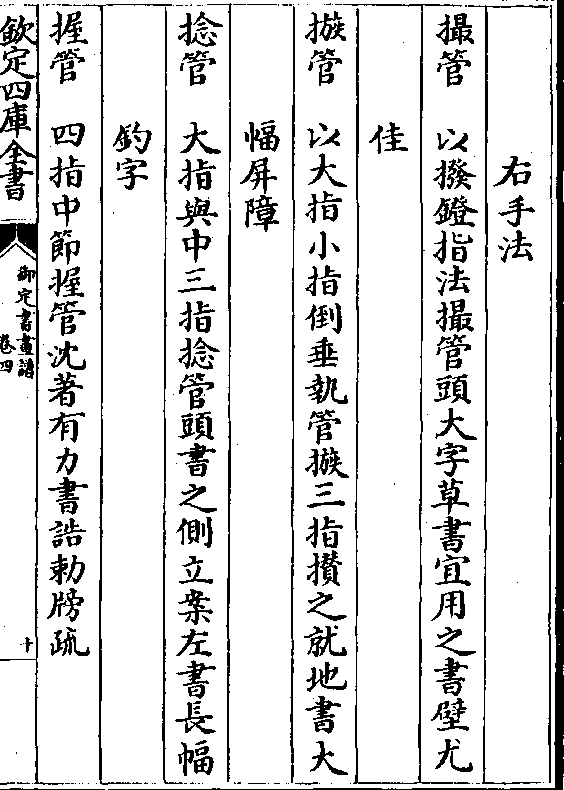 右手法
撮管 以撥鐙指法撮管頭大字草書宜用之書壁尤
佳
㨨管 以大指小指倒垂執管㨨三指攢之就地書大
幅屏障
捻管 大指與中三指捻管頭書之側立案左書長幅
釣字
握管 四指中節握管沈著有力書誥勅牓疏
欽定四庫全書
御定書畫譜
卷四
十